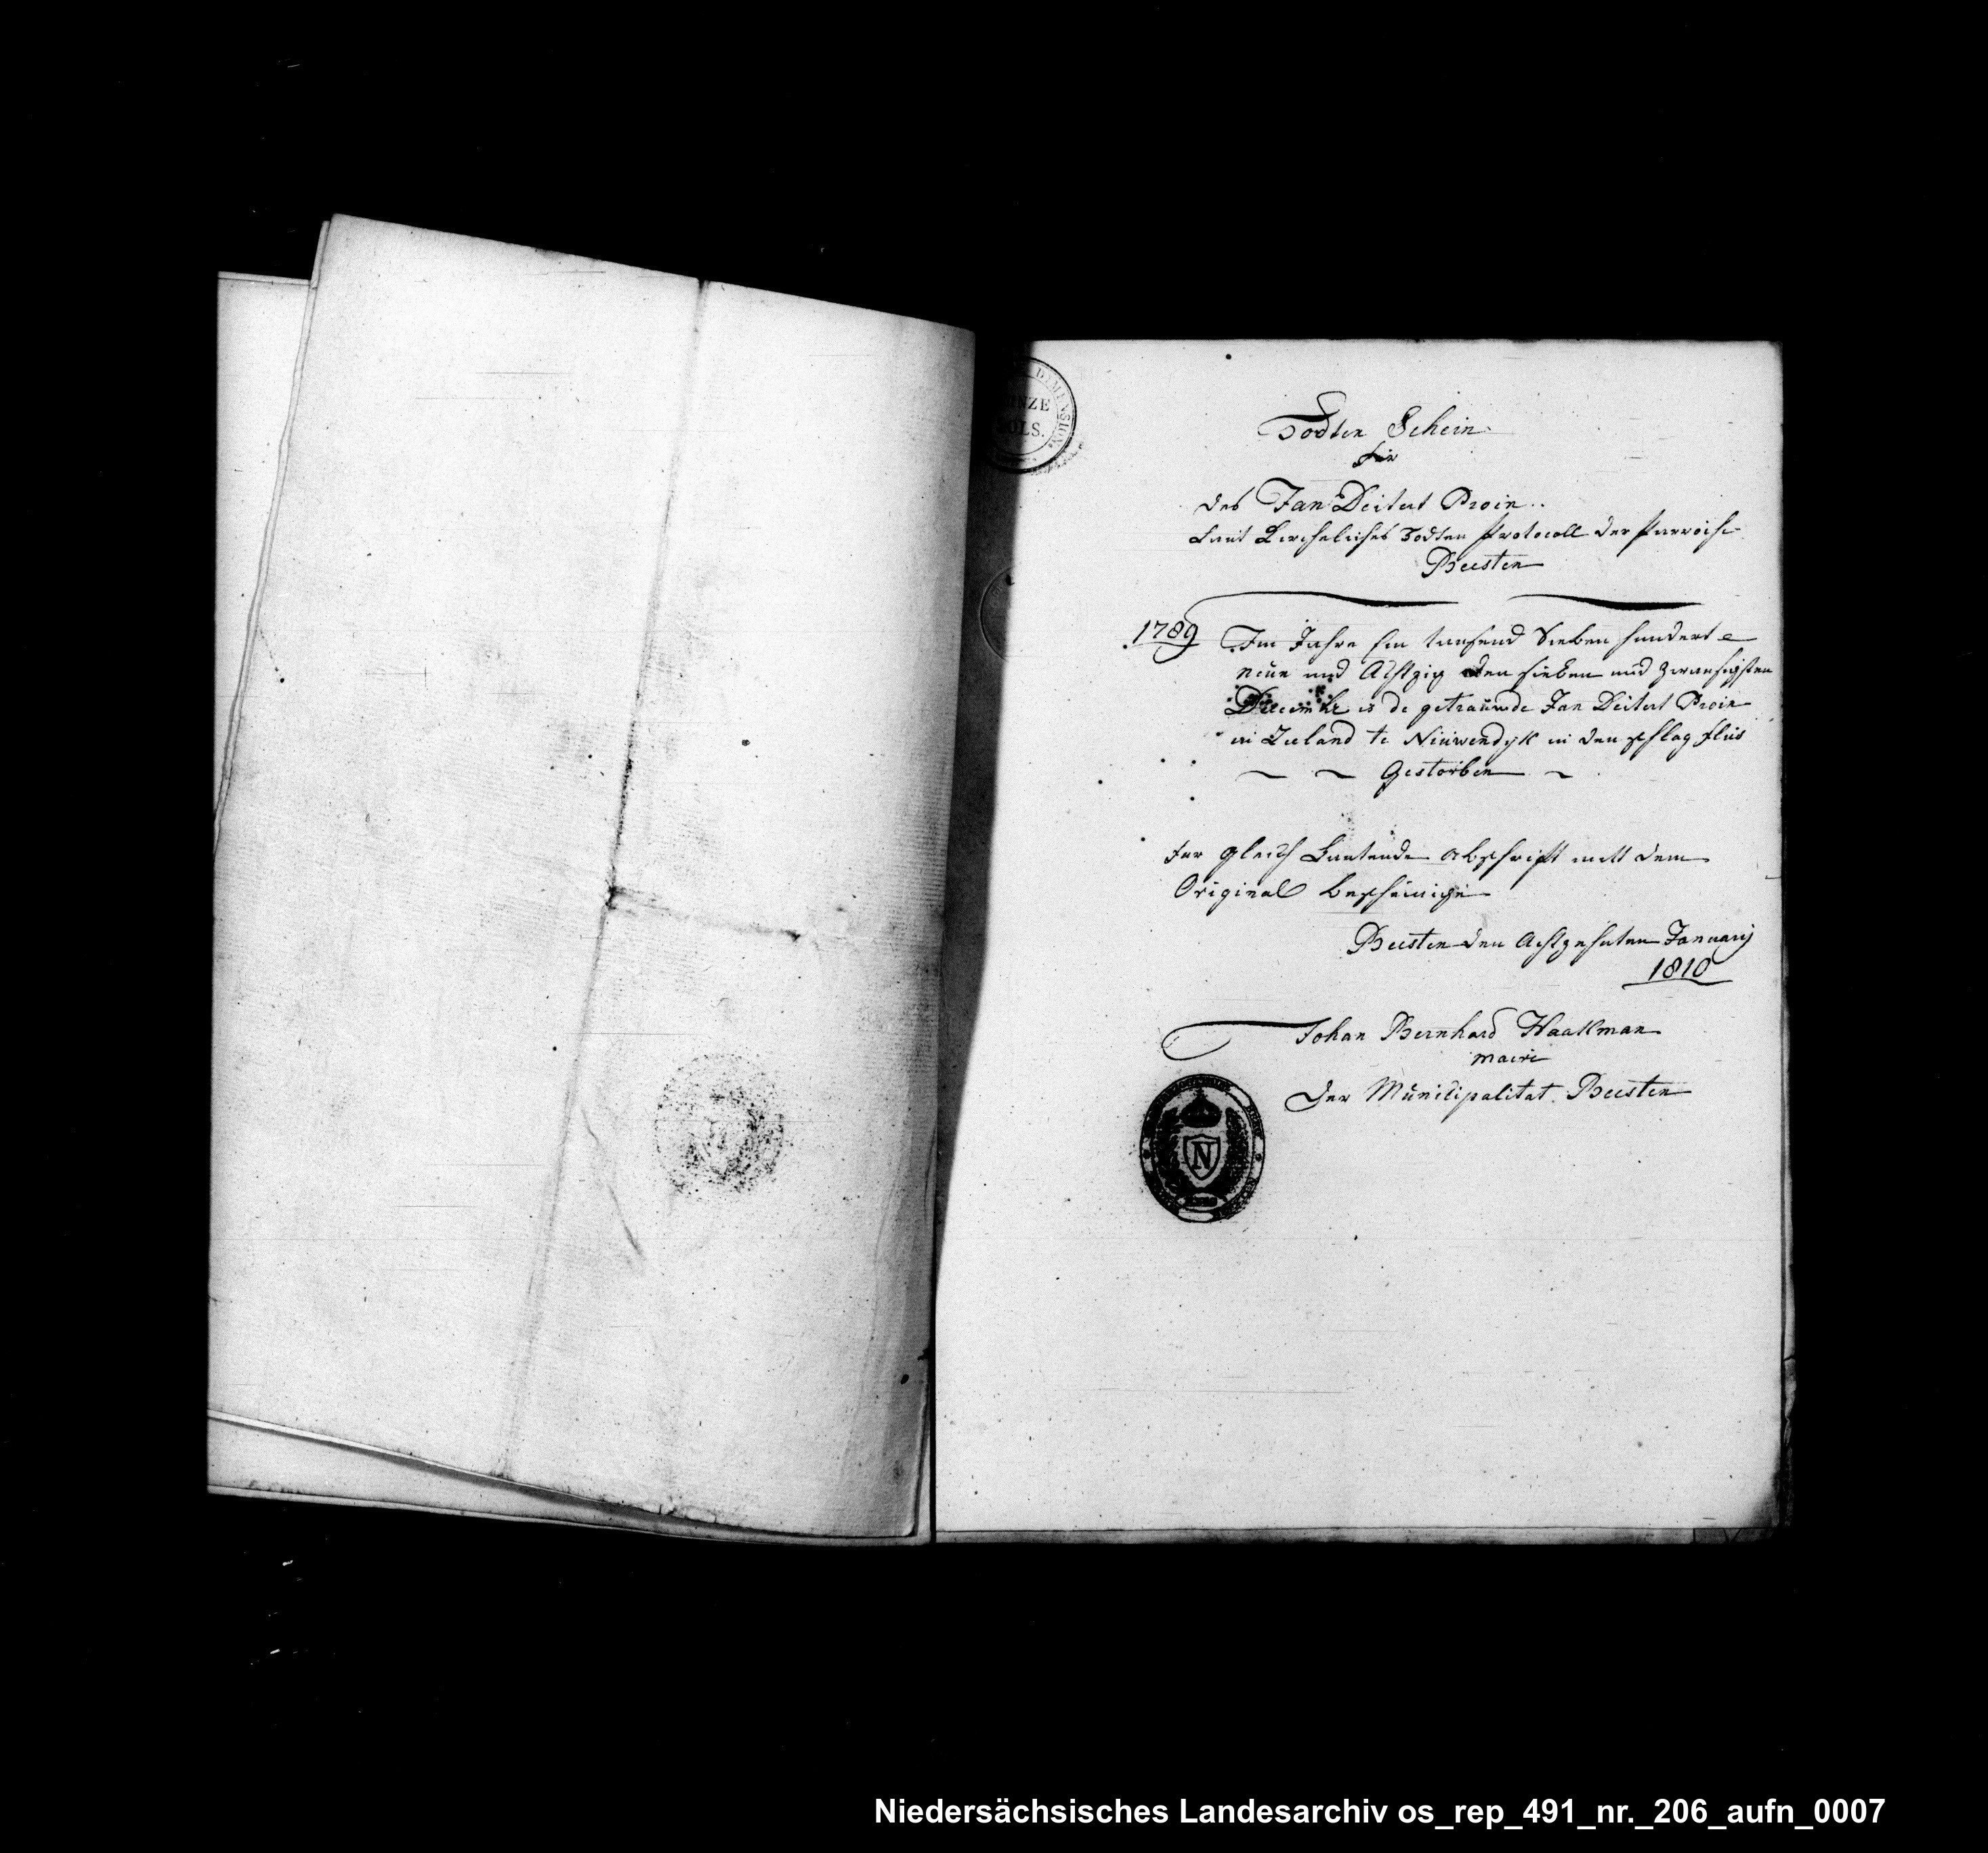 DIMENSION
INZE
OLS.
Todten Schein
für
des Jan Deitert Proin
Laut Kircheliches Todten Protocoll der Parroise
Beesten
1789 Im Jahre Ein tausend Sieben hundert
neün und Achtzig den sieben und zwansigsten
Decembr is de getrauwde Jan Deitert Proin
in Zeeland te Niuwendijk in den
Gestorben
Fur gleich Lautende Abschrift mitt dem
Original bescheinige
Beesten den Achtzehnten Januarij
1810
Johan Bernhard Haakman
Maire
Der Municipalitat Beesten
N
Niedersächsisches Landesarchiv os_rep_491_nr._206_aufn_0007